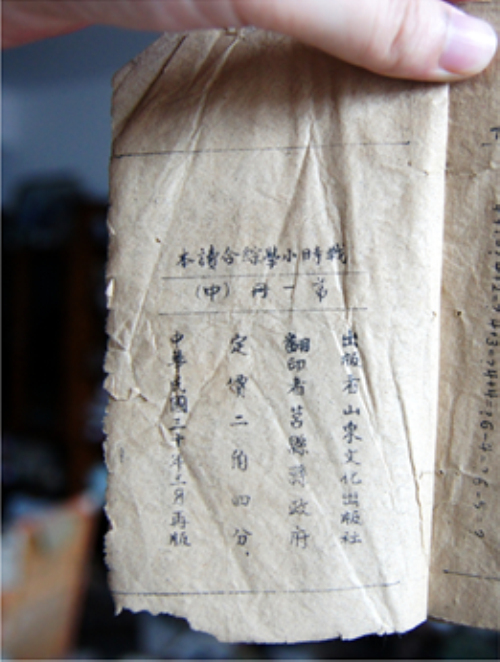 戰時小學綜合讀本
第一冊（中）
出版者山東文化出版社
翻印者莒縣縣政府
定價二角四分.
中華民國三十年二月再版